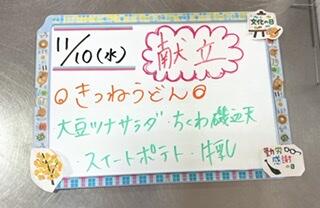 文化の日
11/10(水) 献立
きつねうどん
大豆ツナサラダ・ちくわ磯辺天
・スイートポテト・牛乳
勤労感謝の日